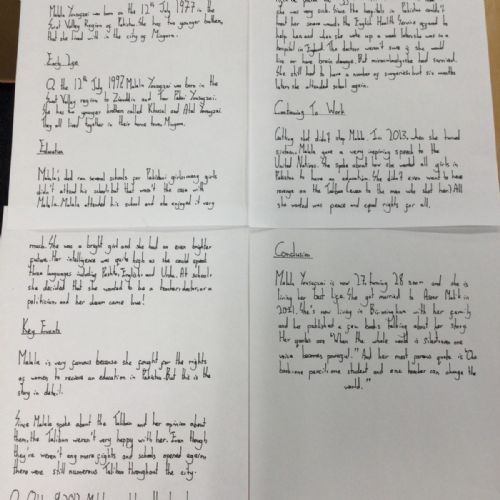 Malala Yousafzai was born on the 12th July 1977 in the
Swat Valley Region of Pakistan. She has two younger brothers
that she lived with in the city of Mingora.
Early Life
On the 12th July 1997 Malala Yousafzai was born in the
Swat Valley region to Ziauddin and Toor Pekai Yousafzai.
She has two younger brothers called Khushal and Atal Yousafzai
They all lived together in their home town, Mingora.
Education
Malala's dad ran several schools for Pakistani girls. Many girls
didn't attend his schools but that wasn't the case with
Malala. Malala attended his school and she enjoyed it very
much. She was a bright girl and she had an even brighter
future. Her intelligence was quite high as she could speak
three languages including Pashto, English and Urdu. At school
she decided that she wanted to be a teacher, doctor, or a
politician and her dream came true!
Key Events
Malala is very famous because she fought for the rights
of women to receive an education in Pakistan. But this is the
story in detail.
Since Malala spoke about the Taliban and her opinion about
them, the Taliban weren't very happy with her. Even though
they're weren't any more fights and schools opened again
there were still numerous Taliban throughout the city.
she was very sick. Since the hospitals in Pakistan couldn't
treat her severe wounds the English Health Service agreed to
help her and when she woke up a week later she was in a
hospital in England. The doctor weren't sure if she would
live or have brain damage. But miraculously she had survived.
She still had to have a number of surgeries but six months
later she attended school again.
Continuing To Work
Getting shot didn't stop Malala. In 2013, when she turned
sixteen, Malala gave a very inspiring speech to the
United Nations. She spoke about how she wanted all girls in
Pakistan to have an education. She didn't even want to have
revenge on the Taliban (even to the man who shot her) All
she wanted was peace and equal rights for all.
Conclusion
Malala Yousafzai is now 27, turning 28 soon and she is
living her best life. She got married to Asser Malik in
2021. She's now living in Birmingham with her family
and has published a few books talking about her story.
Her quotes are "When the whole world is silent even one
voice becomes powerful." And her most famous quote is "One
book, one pencil, one student and one teacher can change the
world."